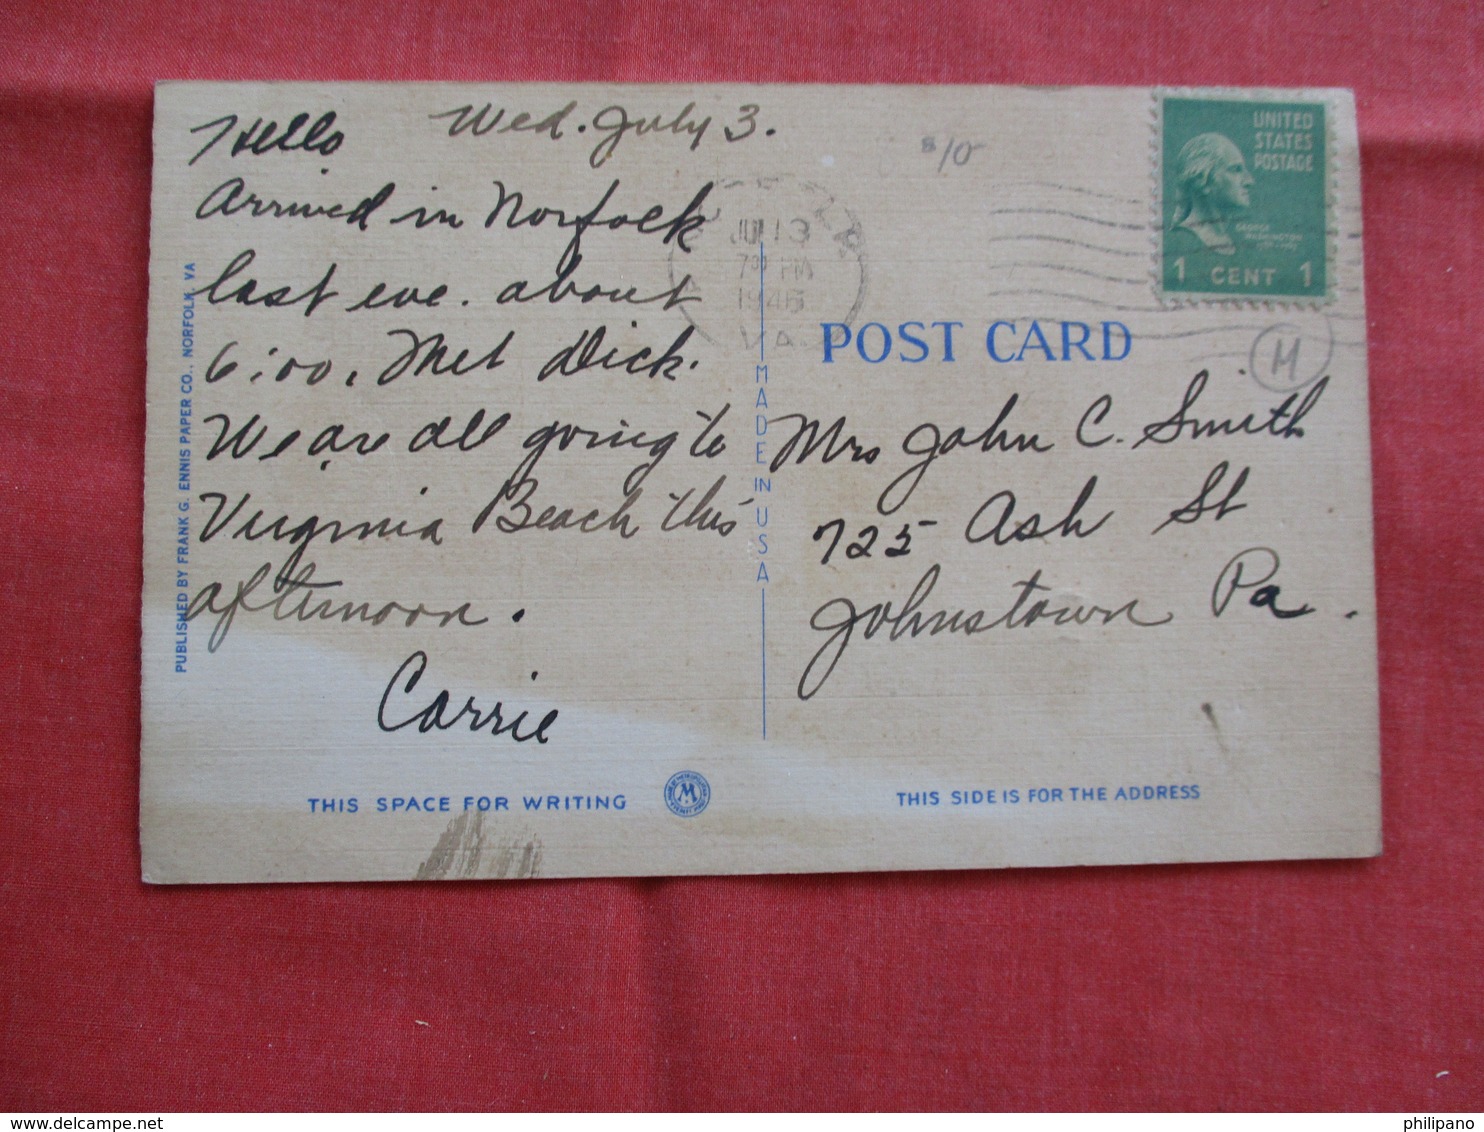 Hello Wed. July 3.
Arrived in Norfolk
last eve. about
6:00. Met Dick.
We are all going to
Virginia Beach this
afternoon.
Carrie
PUBLISHED BY FRANK G. ENNIS PAPER CO., NORFOLK, VA
THIS SPACE FOR WRITING
MADE IN USA
8/10
JUL 3
7 30 PM
1946
VA.
UNITED
STATES
POSTAGE
GEORGE
WASHINGTON
1 CENT 1
M
POST CARD
Mrs John C. Smith
725 Ash St
Johnstown Pa.
THIS SIDE IS FOR THE ADDRESS
philipano
www.delcampe.net